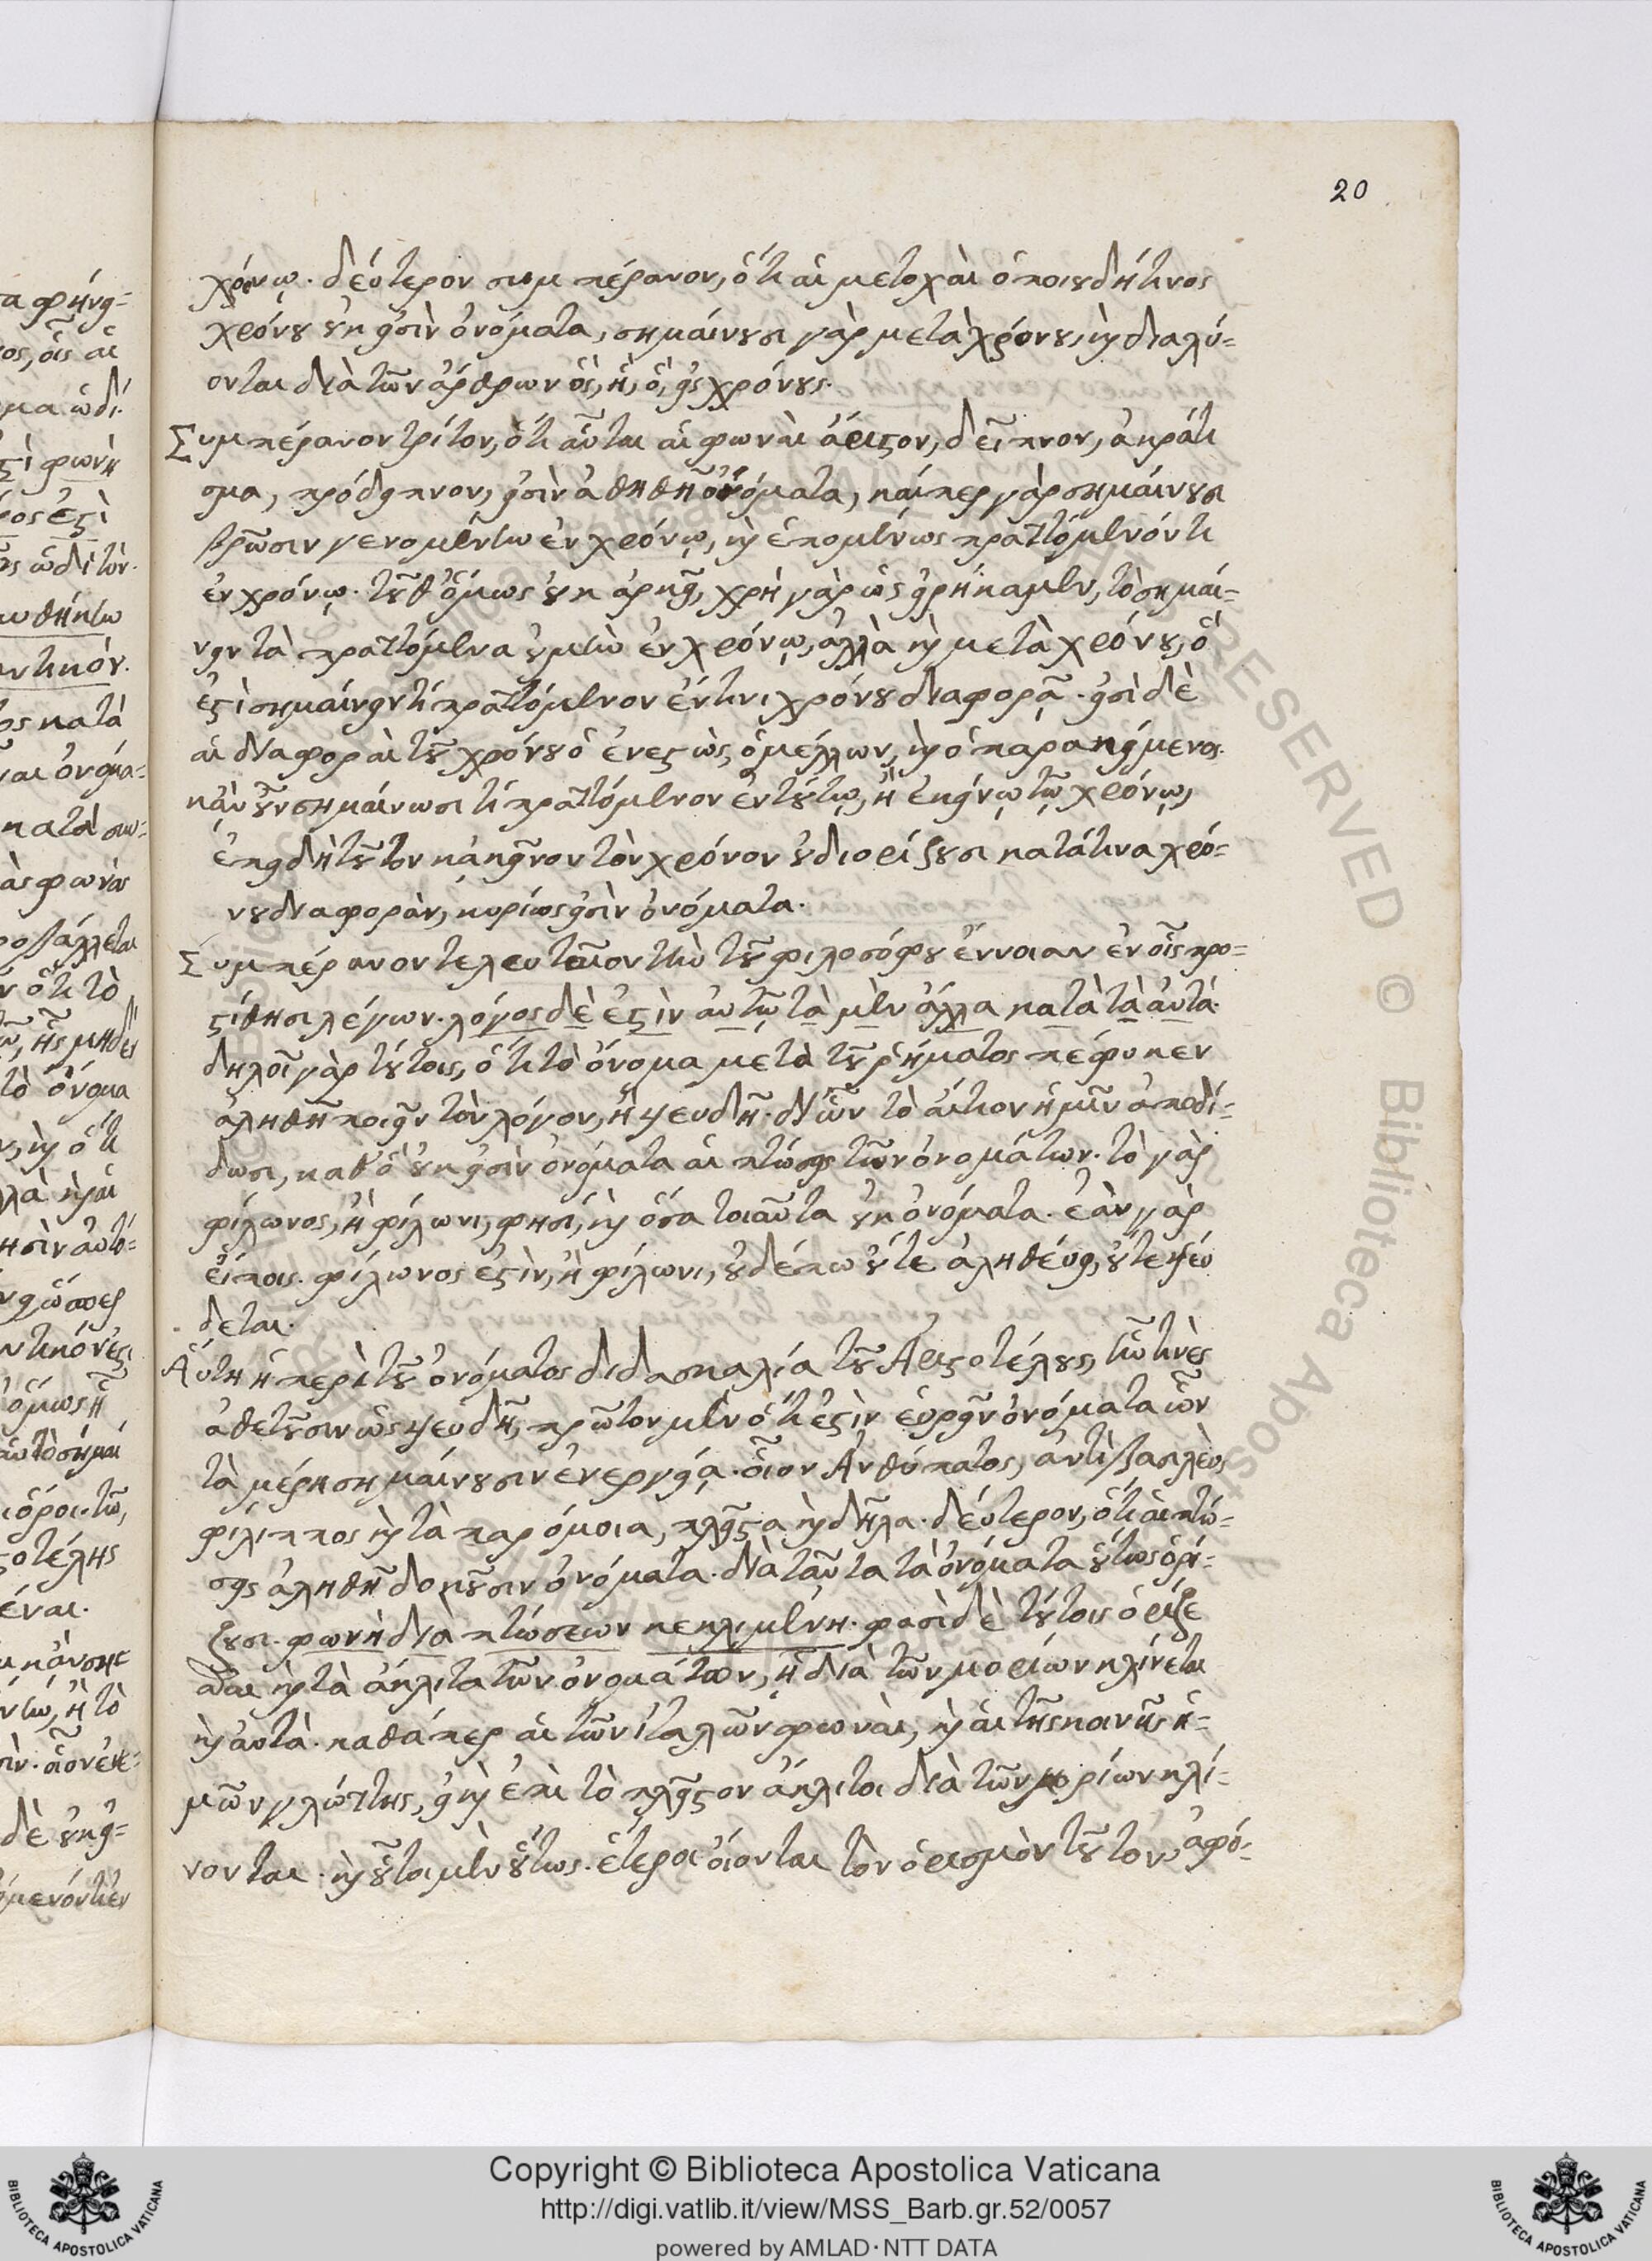 20
χρόνῳ. δεύτερον συμπέρανον, ὅτι αἱ μετοχαὶ ὁποιουδήτινος
χρόνου οὐκ εἰσὶν ὀνόματα, σημαίνουσι γὰρ μετὰ χρόνου, καὶ διαλύ-
ονται διὰ τῶν ἄρθρων ὃς, ἣ, ὃ, εἰς χρόνους.
Συμπέρανον τρίτον, ὅτι αὗται αἱ φωναὶ ἄριστον, δεῖπνον, ἀκράτι
σμα, πρόδειπνον, εἰσὶν ἀληθῆ ὀνόματα, καίπερ γὰρ σημαίνουσι
βρῶσιν γενομένην ἐν χρόνῳ, καὶ ἑπομένως πραττόμενόν τι
ἐν χρόνῳ. τοῦθ' ὅμως οὐκ ἀρκεῖ, χρὴ γὰρ ὡς εἰρήκαμεν, τὸ σημαί-
νειν τὰ πραττόμενα οὐ μὴν ἐν χρόνῳ, ἀλλὰ καὶ μετὰ χρόνου, ὅ
ἐστὶ σημαίνειν τί πραττόμενον ἔν τινι χρόνου διαφορᾷ. εἰσὶ δὲ
αἱ διαφοραὶ τοῦ χρόνου ὁ ἐνεστὼς, ὁ μέλλων, καὶ ὁ παρακείμενος.
κᾂν οὖν σημαίνωσι τί πραττόμενον ἐν τούτῳ, ἢ ἐκείνῳ τῷ χρόνῳ,
ἐπειδὴ τοῦτον κᾀκεῖνον τὸν χρόνον οὐ διορίζουσι κατά τινα χρό-
νου διαφορὰν, κυρίως εἰσὶν ὀνόματα.
Συμπέρανον τελευταῖον τὴν τοῦ φιλοσόφου ἔννοιαν ἐν οἷς προ-
στίθησι λέγων. λόγος δὲ ἐστὶν αὐτῷ τὰ μὲν ἄλλα κατὰ τὰ αὐτά.
δηλοῖ γὰρ τούτοις, ὅτι τὸ ὄνομα μετὰ τοῦ ῥήματος πέφυκεν
ἀληθῆ ποιεῖν τὸν λόγον, ἢ ψευδῆ. δι' ὧν τὸ αἴτιον ἡμῖν ἀποδί-
δωσι, καθ' ὃ οὐκ εἰσὶν ὀνόματα αἱ πτώσεις τῶν ὀνομάτων. τὸ γὰρ
φίλωνος, ἢ φίλωνι, φησὶ, καὶ ὅσα τοιαῦτα οὐκ ὀνόματα. ἐὰν γὰρ
εἴποις. φίλωνος ἐστὶν, ἢ φίλωνι, οὐδέπω οὔτε ἀληθεύει, οὔτε ψεύ
δεται.
Αὕτη ἡ περὶ τοῦ ὀνόματος διδασκαλία τοῦ Ἀριστοτέλους, ἣν τινὲς
ἀθετοῦσιν ὡς ψευδῆ, πρῶτον μὲν ὅτι ἐστὶν εὑρεῖν ὀνόματα ὧν
τὰ μέρη σημαίνουσιν ἐνεργείᾳ. οἷον Ἀνθύπατος, ἀντιβασιλεὺς
φίλιππος καὶ τὰ παρόμοια, πλεῖστα καὶ δῆλα. δεύτερον, ὅτι αἱ πτώ-
σεις ἀληθῆ δοκοῦσιν ὀνόματα. διὰ ταῦτα τὰ ὀνόματα οὕτως ὁρί-
ζουσι. φωνὴ διὰ πτώσεων κεκλιμένη. φασὶ δὲ τούτοις ὁρίζε
σθαι καὶ τὰ ἄκλιτα τῶν ὀνομάτων, ἢ διὰ τῶν μορίων κλίνεται
καὶ αὐτὰ. καθάπερ αἱ τῶν ἰταλῶν φωναὶ, καὶ αἱ τῆς κοινῆς ἡ-
μῶν γλώττης, εἰ καὶ ἐπὶ τὸ πλεῖστον ἄκλιτοι διὰ τῶν μορίων κλί-
νονται. καὶ οὗτοι μὲν οὕτως. ἕτεροι οἴονται τὸν ὁρισμὸν τοῦτον, ἀφό-
Copyright © Biblioteca Apostolica Vaticana
http://digi.vatlib.it/view/MSS_Barb.gr.52/0057
powered by AMLAD·NTT DATA